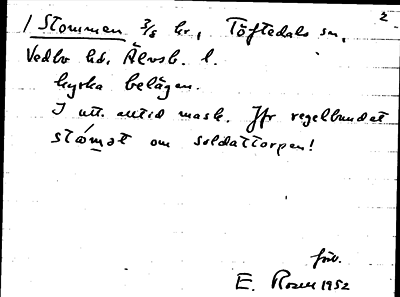 2
/ Stommen 3/8 hr, Töftedals sn,
Vedbo hd, Älvsb. l.
kyrka belägen.
I utt. alltid mask. Jfr regelbundet
stómət om soldattorpen!
förb.
E. Rosell 1952